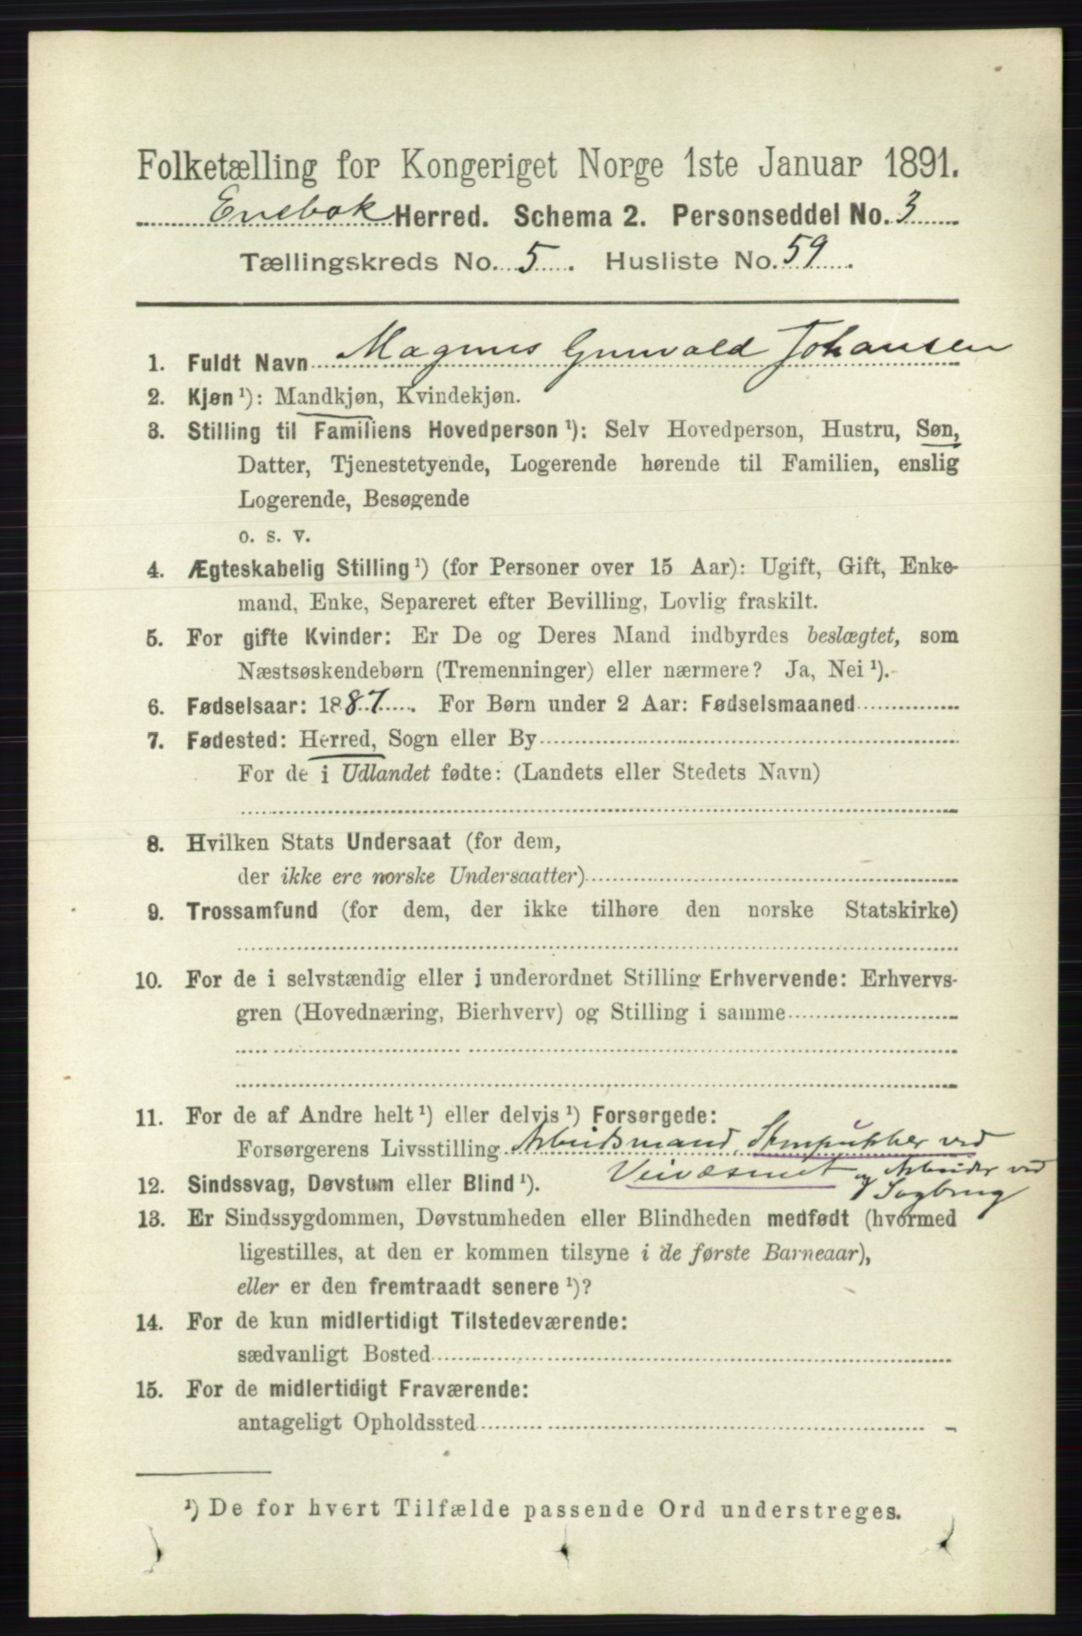 Folketælling for Kongeriget Norge 1ste Januar 1891.
Enebak Herred. Schema 2. Personseddel No. 3
Tællingskreds No. 5. Husliste No. 59.
1. Fuldt Navn Magnus Gunvald Johansen
2. Kjøn ¹): Mandkjøn, Kvindekjøn.
3. Stilling til Familiens Hovedperson ¹): Selv Hovedperson, Hustru, Søn,
Datter, Tjenestetyende, Logerende hørende til Familien, enslig
Logerende, Besøgende
o. s. v.
4. Ægteskabelig Stilling ¹) (for Personer over 15 Aar): Ugift, Gift, Enke-
mand, Enke, Separeret efter Bevilling, Lovlig fraskilt.
5. For gifte Kvinder: Er De og Deres Mand indbyrdes beslægtet, som
Næstsøskendebørn (Tremenninger) eller nærmere? Ja, Nei ¹).
6. Fødselsaar: 1887. For Børn under 2 Aar: Fødselsmaaned
7. Fødested: Herred, Sogn eller By
For de i Udlandet fødte: (Landets eller Stedets Navn)
8. Hvilken Stats Undersaat (for dem,
der ikke ere norske Undersaatter)
9. Trossamfund (for dem, der ikke tilhøre den norske Statskirke)
10. For de i selvstændig eller i underordnet Stilling Erhvervende: Erhvervs-
gren (Hovednæring, Bierhverv) og Stilling i samme
11. For de af Andre helt ¹) eller delvis ¹) Forsørgede:
Forsørgerens Livsstilling Arbeidsmand, Stenpukker ved
Veivæsenet og Arbeider ved
Sagbrug
12. Sindssvag, Døvstum eller Blind ¹).
13. Er Sindssygdommen, Døvstumheden eller Blindheden medfødt (hvormed
ligestilles, at den er kommen tilsyne i de første Barneaar),
eller er den fremtraadt senere ¹)?
14. For de kun midlertidigt Tilstedeværende:
sædvanligt Bosted
15. For de midlertidigt Fraværende:
antageligt Opholdssted
¹) De for hvert Tilfælde passende Ord understreges.